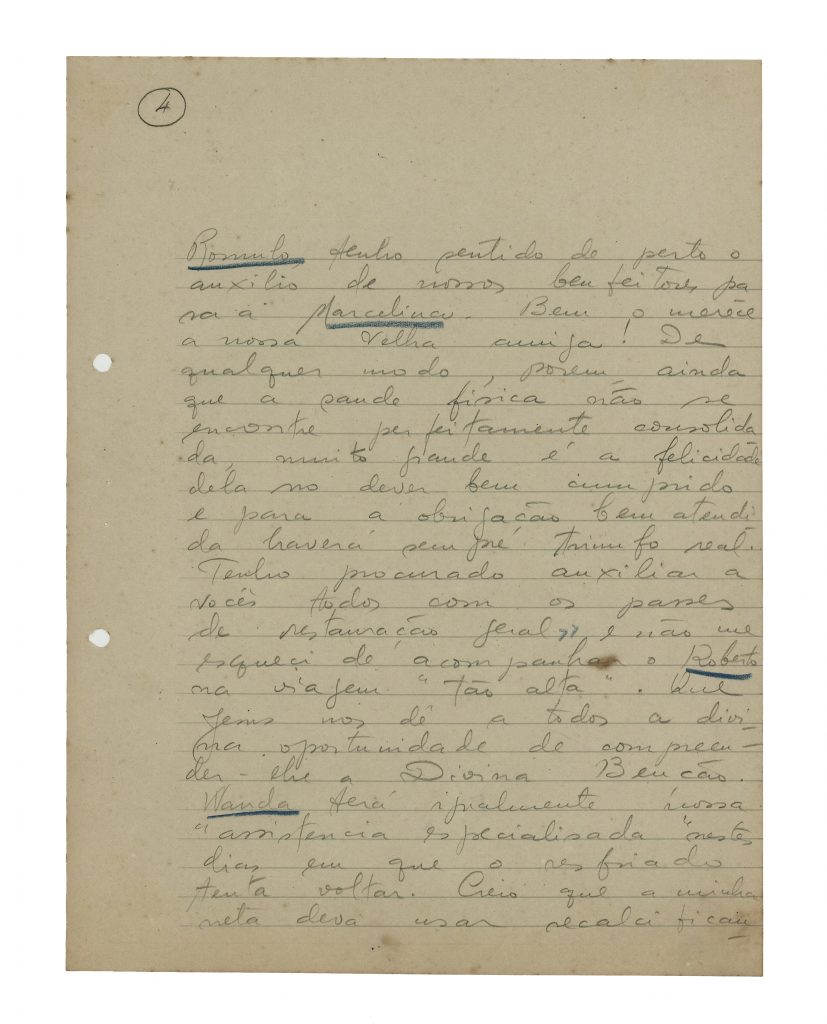 4
Romulo, tenho sentido de perto o
auxilio de nossos benfeitores pa
ra a Marcelina. Bem o merece
a nossa velha amiga! De
qualquer modo, porem, ainda
que a saude física não se
encontre perfeitamente consolida
da, muito grande é a felicidade
dela no dever bem cumprido
e para a obrigação bem atendi
da haverá sempre triunfo real.
Tenho procurado auxiliar a
vocês todos com os passes
de restauração geral, e não me
esqueci de acompanhar o Roberto
na viagem "tão alta". Que
Jesus nos dê a todos a divi-
na oportunidade de compreen-
der-lhe a Divina Benção.
Wanda terá igualmente nossa
"assistencia especialisada" nestes
dias em que o resfriado
tenta voltar. Creio que a minha
neta deva usar recalcifican-